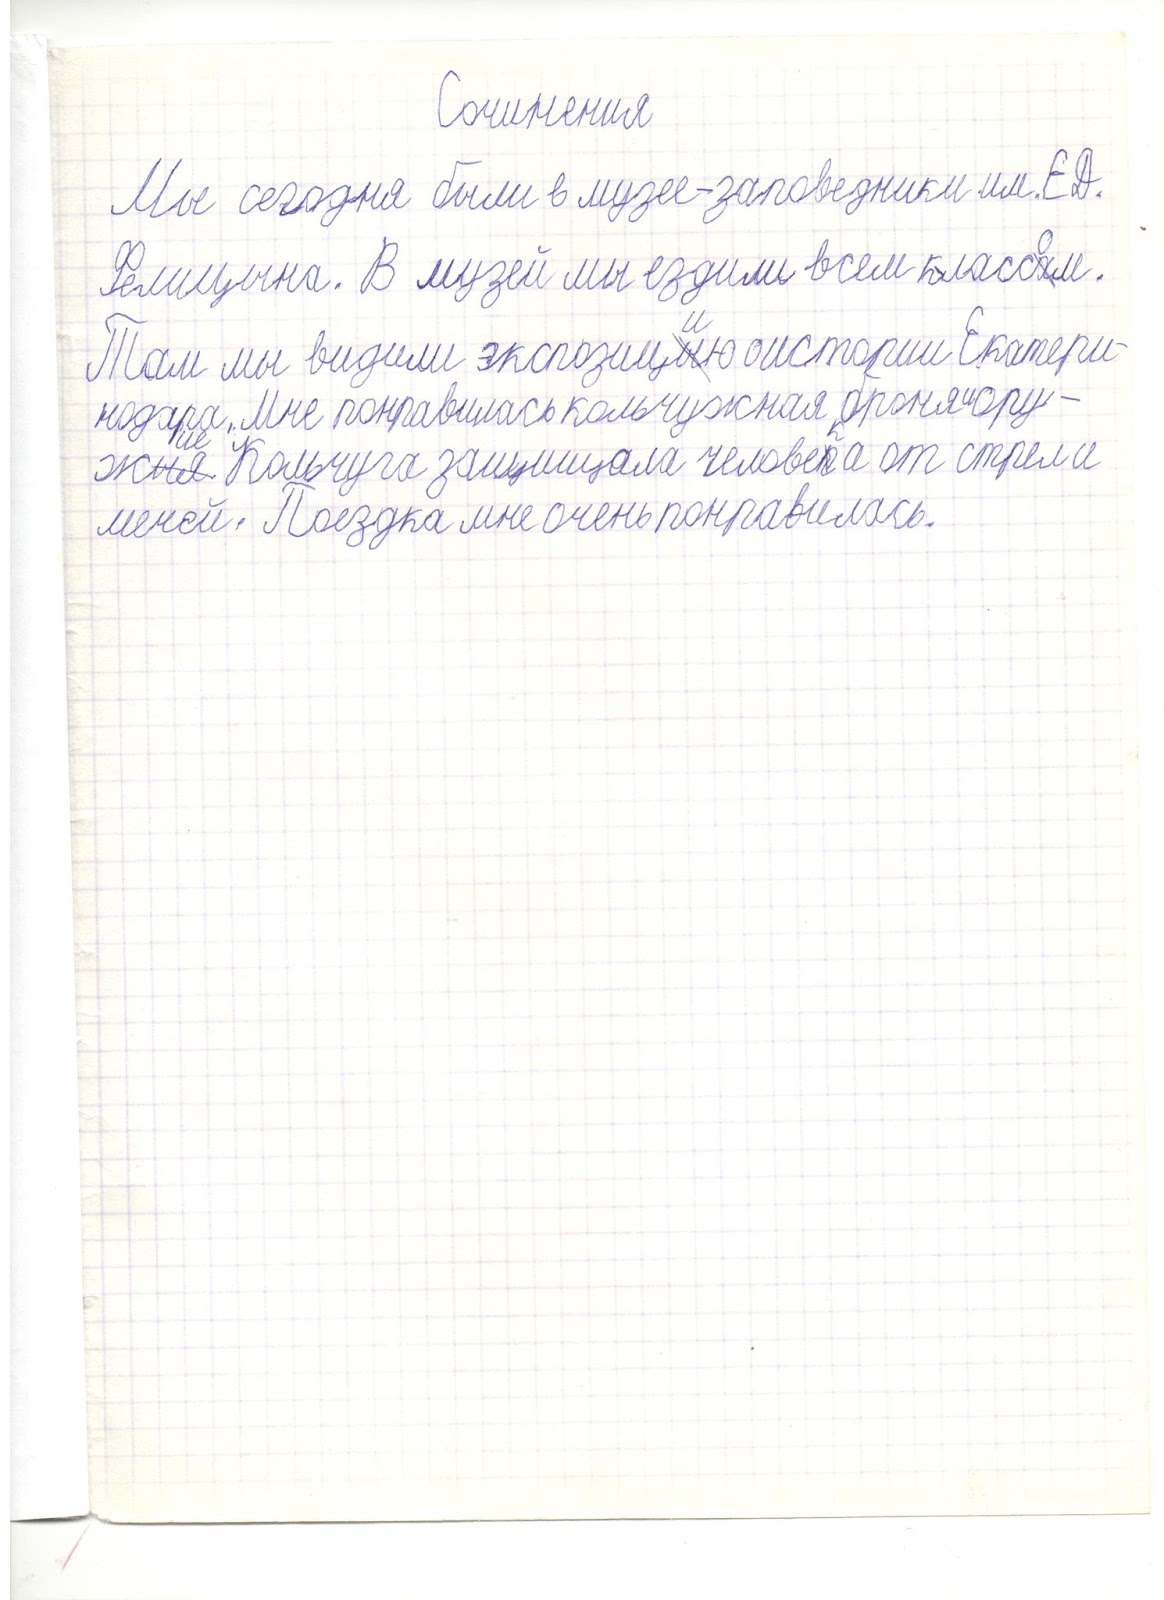 Сочинения
Мы сегодня были в музее-заповедники им. Е.Д.
Фелицына. В музей мы ездили всем классом.
Там мы видили экспозицию о истории Екатери-
нодара. Мне понравилась кольчужная броня и ору-
жие Кольчуга защищала человека от стрел и
мечей. Поездка мне очень понравилась.